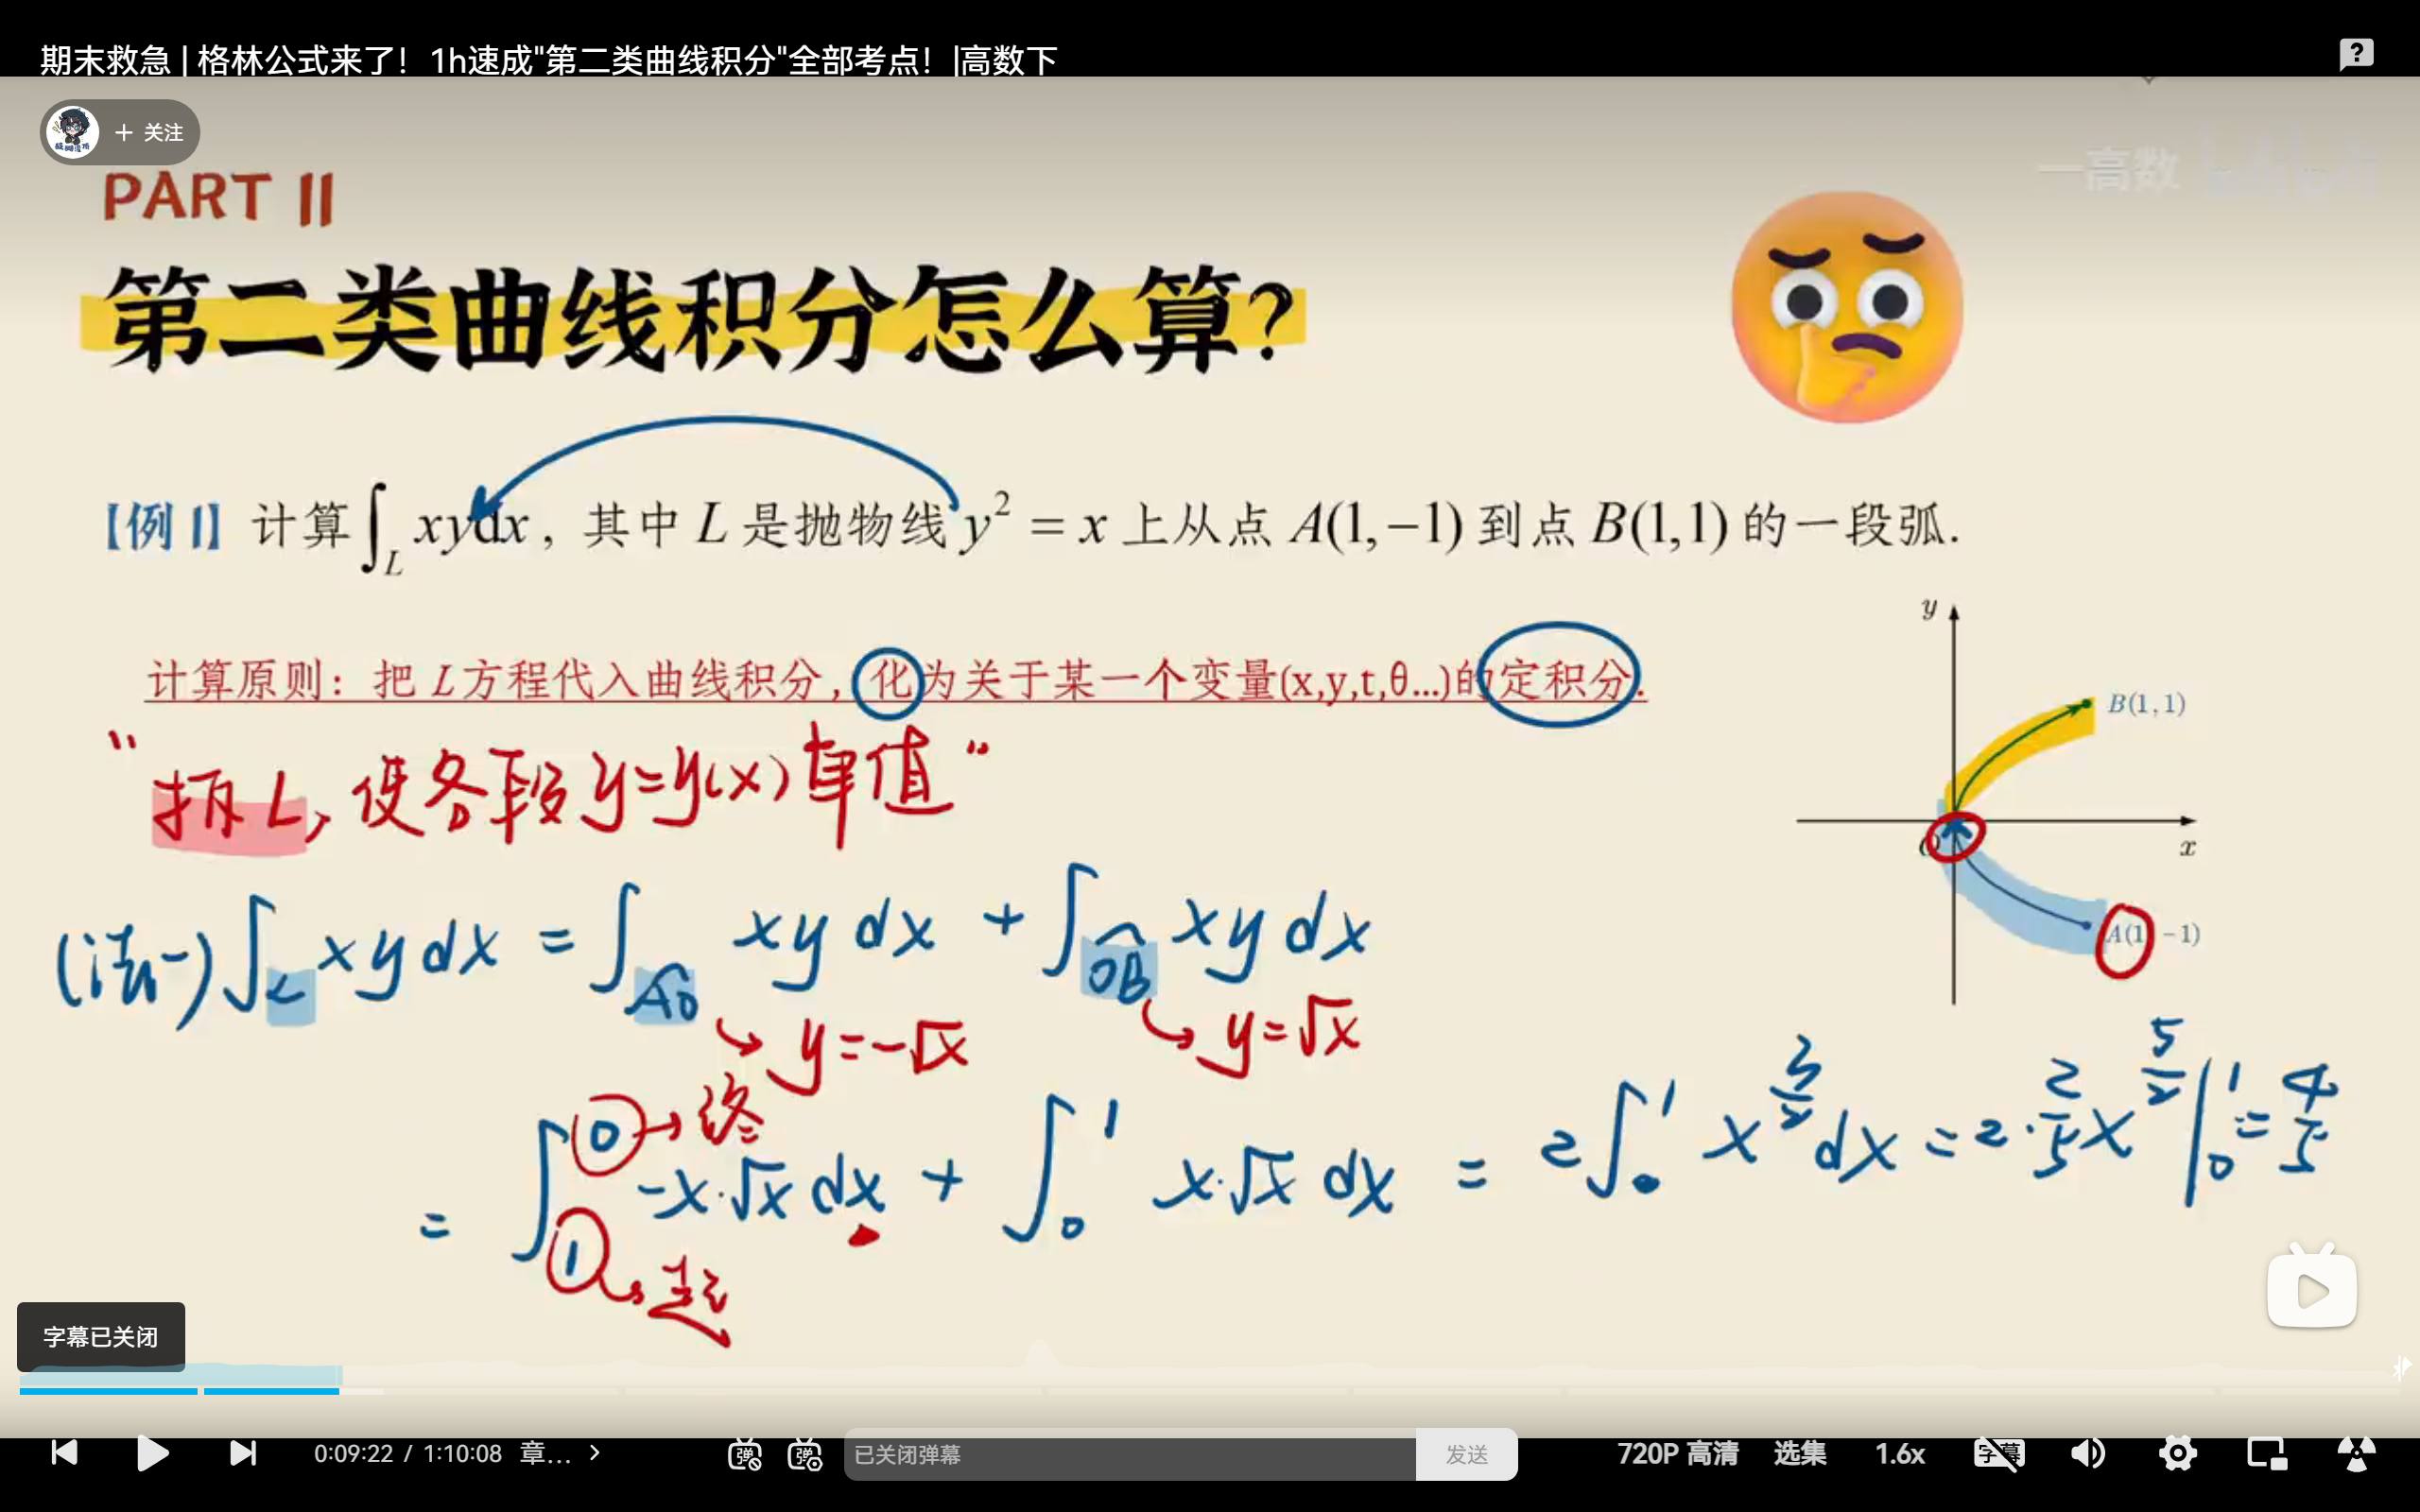 期末救急 | 格林公式来了！1h速成"第二类曲线积分"全部考点！|高数下
+ 关注
一高数
PART II
第二类曲线积分怎么算?
【例 1】计算∫_L xydx，其中 L 是抛物线 y² = x 上从点 A(1,−1) 到点 B(1,1) 的一段弧.
计算原则：把 L方程代入曲线积分，化为关于某一个变量(x,y,t,θ...)的定积分.
"拆L, 使各段y=y(x)单值"
y
B(1,1)
O
x
A(1,−1)
(法一) ∫_L xy dx = ∫_AO xy dx + ∫_OB xy dx
y=-√x
y=√x
= ∫_1^0 -x·√x dx + ∫_0^1 x·√x dx = 2∫_0^1 x^(3/2) dx = 2·2/5 x^(5/2) |_0^1 = 4/5
→终
起
字幕已关闭
0:09:22 / 1:10:08 章... >
弹 弹
已关闭弹幕
发送
720P 高清
选集
1.6x
字幕